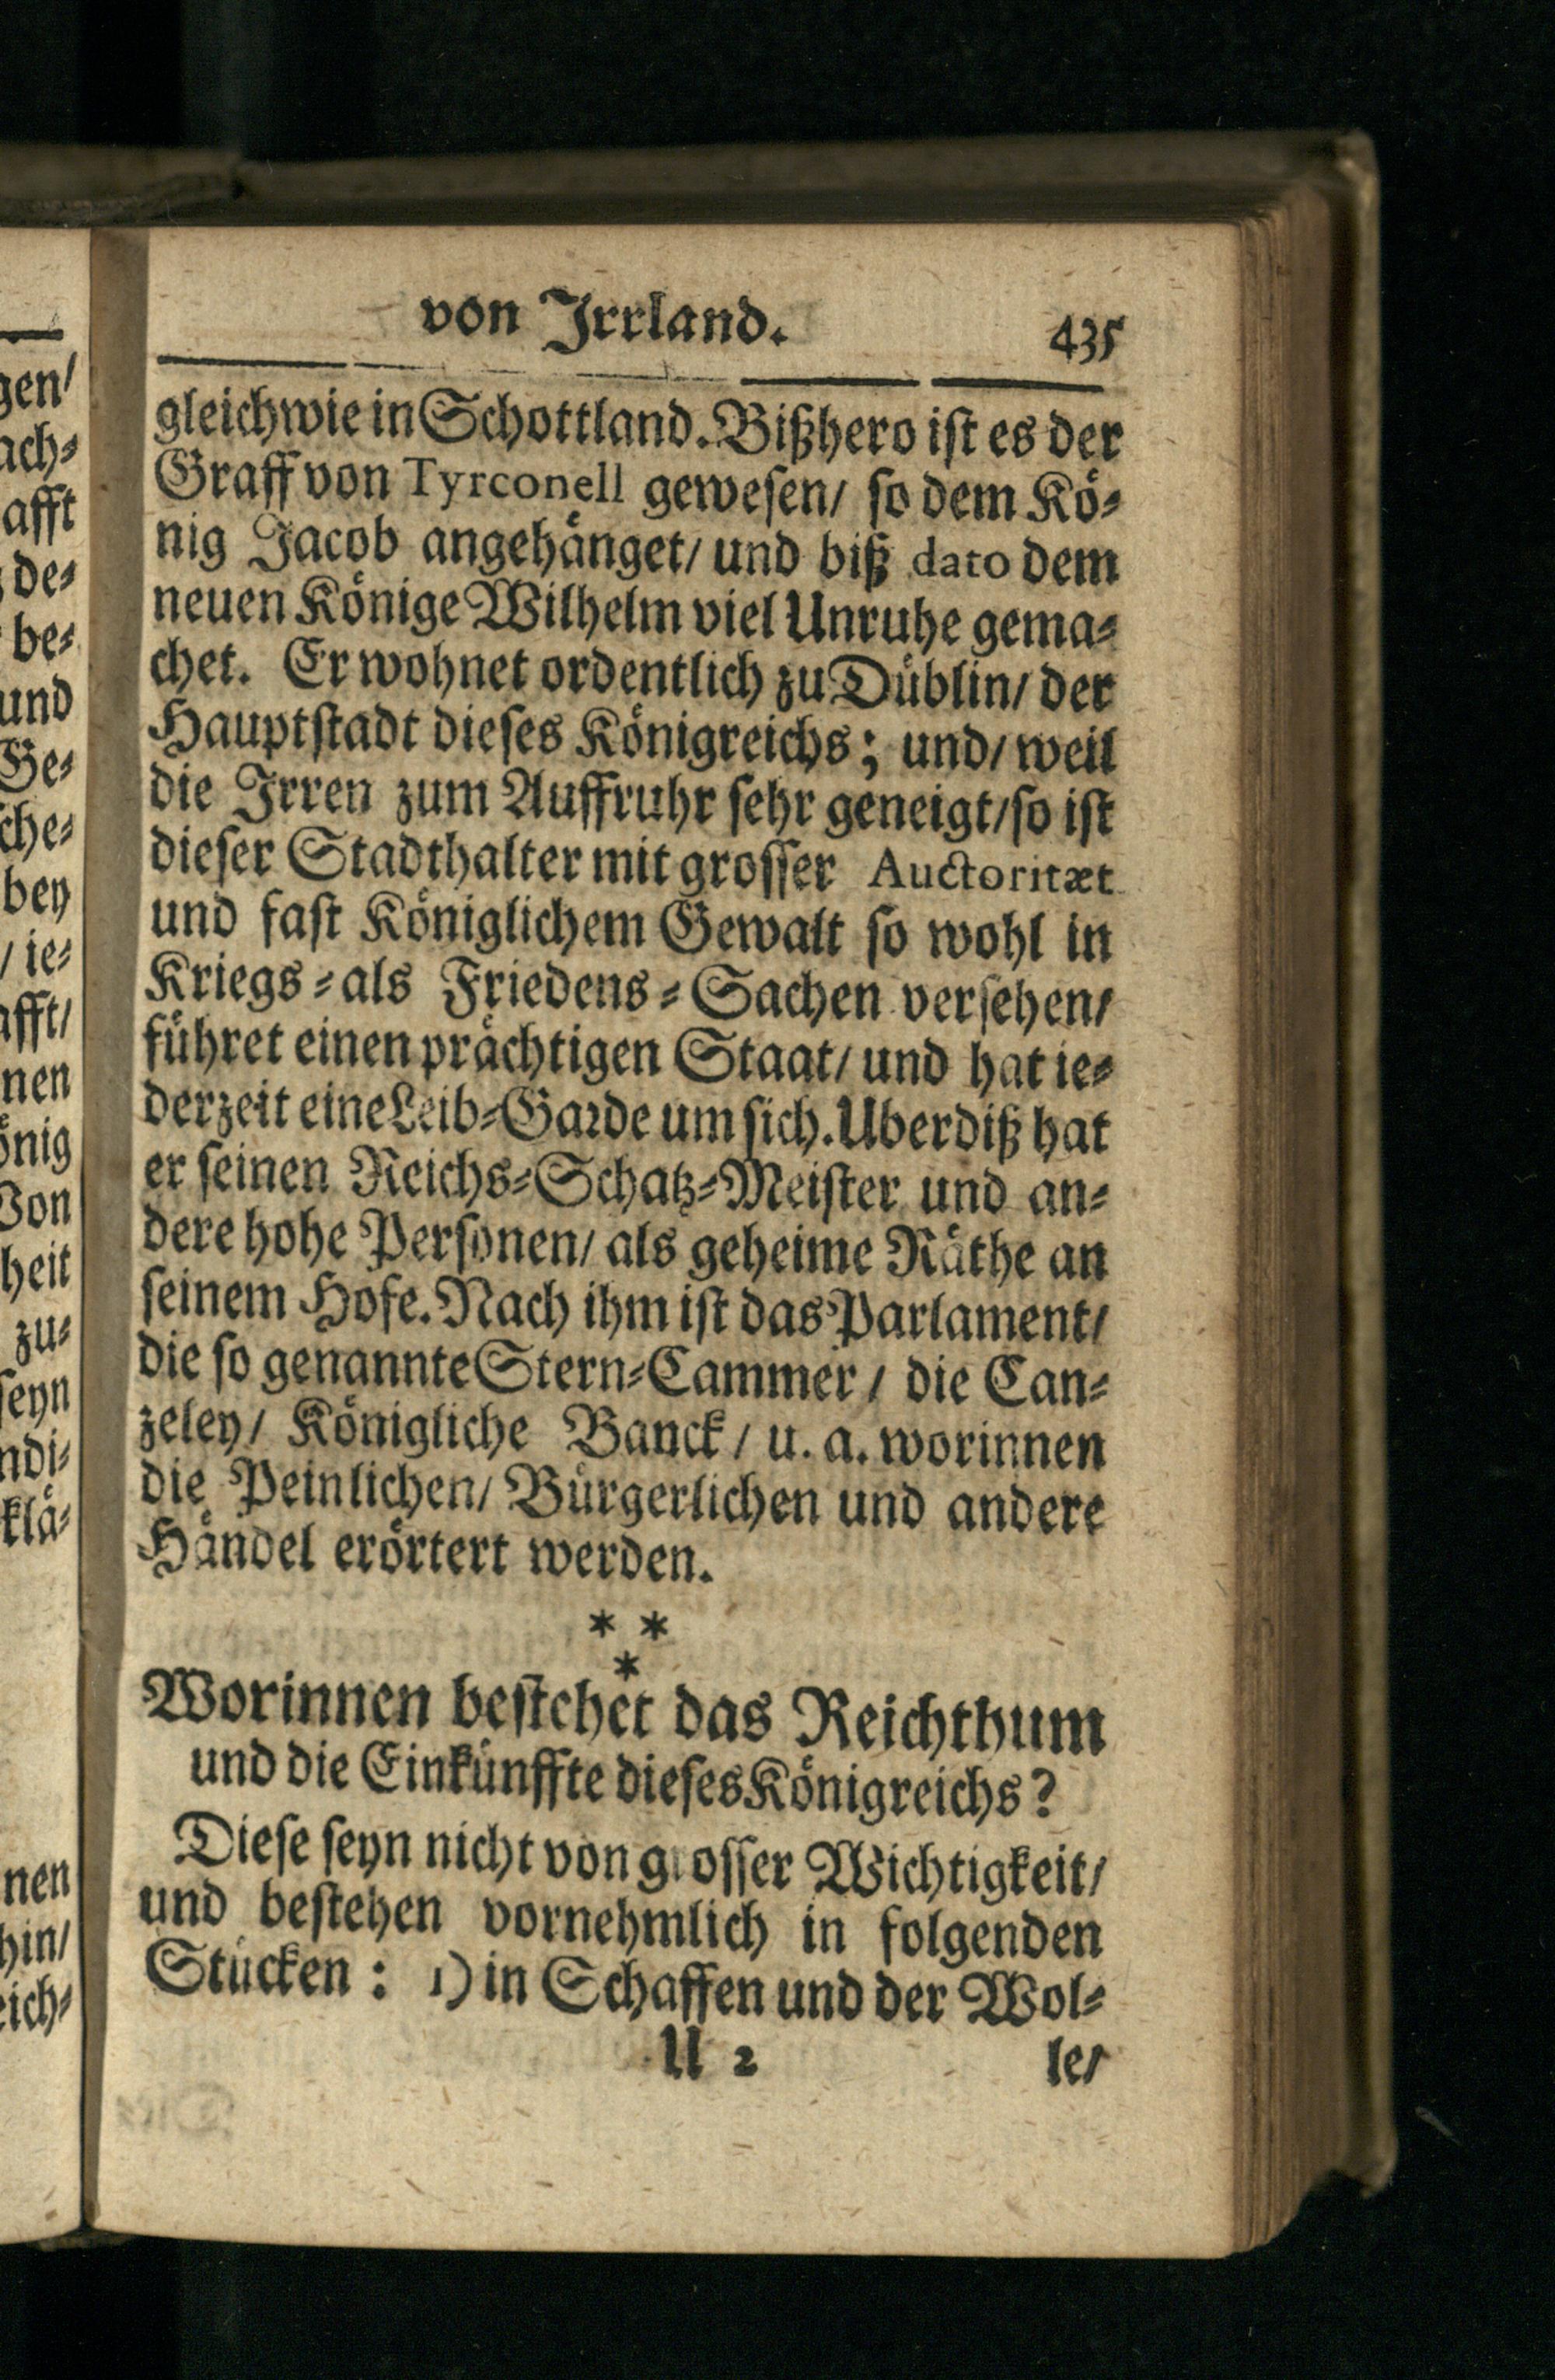 von Irrland.
435
gleichwie in Schottland. Bißhero ist es der
Graff von Tyrconell gewesen/ so dem Kö-
nig Jacob angehänget/ und biß dato dem
neuen Könige Wilhelm viel Unruhe gema-
chet. Er wohnet ordentlich zu Düblin/ der
Hauptstadt dieses Königreichs; und/ weil
die Irren zum Auffruhr sehr geneigt/ so ist
dieser Stadthalter mit grosser Auctoritæt
und fast Königlichem Gewalt so wohl in
Kriegs- als Friedens-Sachen versehen/
führet einen prächtigen Staat/ und hat ie-
derzeit eine Leib-Garde um sich. Uberdiß hat
er seinen Reichs-Schatz-Meister und an-
dere hohe Personen/ als geheime Räthe an
seinem Hofe. Nach ihm ist das Parlament/
die so genannte Stern-Cammer/ die Can-
zeley/ Königliche Banck/ u. a. worinnen
die Peinlichen/ Bürgerlichen und andere
Händel erörtert werden.
* *
*
Worinnen bestehet das Reichthum
und die Einkünffte dieses Königreichs?
Diese seyn nicht von grosser Wichtigkeit/
und bestehen vornehmlich in folgenden
Stücken: 1) in Schaffen und der Wol-
U 2
le/
gen/
ach-
afft
de-
be-
und
Ge-
che-
bey
/ ie-
afft/
nen
önig
Von
heit
zu-
seyn
ndi-
klä-
nen
hin/
eich-